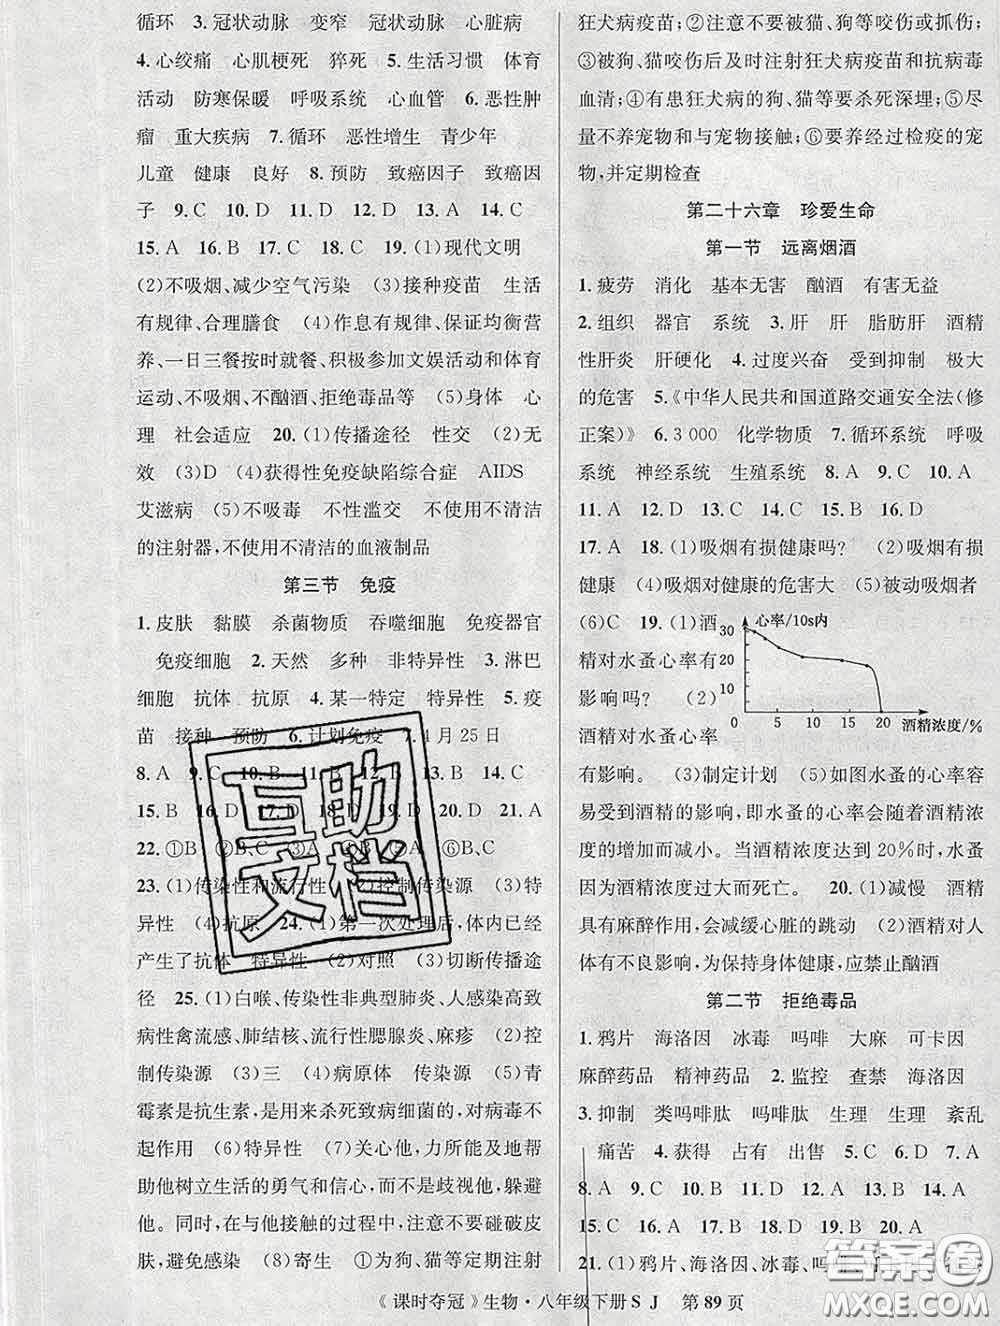 循环　3.冠状动脉　变窄　冠状动脉　心脏病
4.心绞痛　心肌梗死　猝死　5.生活习惯　体育
活动　防寒保暖　呼吸系统　心血管　6.恶性肿
瘤　重大疾病　7.循环　恶性增生　青少年
儿童　健康　良好　8.预防　致癌因子　致癌因
子　9.C　10.D　11.D　12.D　13.A　14.C
15.A　16.B　17.C　18.D　19.(1)现代文明
(2)不吸烟、减少空气污染　(3)接种疫苗　生活
有规律、合理膳食　(4)作息有规律、保证均衡营
养、一日三餐按时就餐、积极参加文娱活动和体育
运动、不吸烟、不酗酒、拒绝毒品等　(5)身体　心
理　社会适应　20.(1)传播途径　性交　(2)无
效　(3)D　(4)获得性免疫缺陷综合症　AIDS
艾滋病　(5)不吸毒　不性滥交　不使用不清洁
的注射器,不使用不清洁的血液制品
第三节　免疫
1.皮肤　黏膜　杀菌物质　吞噬细胞　免疫器官
免疫细胞　2.天然　多种　非特异性　3.淋巴
细胞　抗体　抗原　4.某一特定　特异性　5.疫
苗　接种　预防　6.计划免疫　7.4月25日
8.A　9.C　10.B　11.B　12.A　13.C　14.C
15.B　16.B　17.D　18.D　19.D　20.D　21.A
22.①B　②B、C　③A　④A　⑤A　⑥B、C
23.(1)传染性和流行性　(2)控制传染源　(3)特
异性　(4)抗原　24.(1)第一次处理后,体内已经
产生了抗体　特异性　(2)对照　(3)切断传播途
径　25.(1)白喉、传染性非典型肺炎、人感染高致
病性禽流感、肺结核、流行性腮腺炎、麻疹　(2)控
制传染源　(3)三　(4)病原体　传染源　(5)青
霉素是抗生素,是用来杀死致病细菌的,对病毒不
起作用　(6)特异性　(7)关心他,力所能及地帮
助他树立生活的勇气和信心,而不是歧视他,躲避
他。同时,在与他接触的过程中,注意不要碰破皮
肤,避免感染　(8)寄生　①为狗、猫等定期注射
狂犬病疫苗;②注意不要被猫、狗等咬伤或抓伤;
③被狗、猫咬伤后及时注射狂犬病疫苗和抗病毒
血清;④有患狂犬病的狗、猫等要杀死深埋;⑤尽
量不养宠物和与宠物接触;⑥要养经过检疫的宠
物,并定期检查
第二十六章　珍爱生命
第一节　远离烟酒
1.疲劳　消化　基本无害　酗酒　有害无益
2.组织　器官　系统　3.肝　肝　脂肪肝　酒精
性肝炎　肝硬化　4.过度兴奋　受到抑制　极大
的危害　5.《中华人民共和国道路交通安全法(修
正案)》　6.3 000　化学物质　7.循环系统　呼吸
系统　神经系统　生殖系统　8.A　9.C　10.A
11.A　12.D　13.D　14.C　15.C　16.D
17.A　18.(1)吸烟有损健康吗?　(2)吸烟有损
健康　(4)吸烟对健康的危害大　(5)被动吸烟者
(6)C　19.(1)酒
精对水蚤心率有
影响吗?　(2)
酒精对水蚤心率
心率/10s内
30
20
10
0　5　10　15　20　酒精浓度/%
有影响。　(3)制定计划　(5)如图水蚤的心率容
易受到酒精的影响,即水蚤的心率会随着酒精浓度
的增加而减小。当酒精浓度达到20%时,水蚤
因为酒精浓度过大而死亡。　20.(1)减慢　酒精
具有麻醉作用,会减缓心脏的跳动　(2)酒精对人
体有不良影响,为保持身体健康,应禁止酗酒
第二节　拒绝毒品
1.鸦片　海洛因　冰毒　吗啡　大麻　可卡因
麻醉药品　精神药品　2.监控　查禁　海洛因
3.抑制　类吗啡肽　吗啡肽　生理　生理　紊乱
痛苦　4.获得　占有　出售　5.C　6.D　7.D
8.A　9.A　10.C　11.B　12.B　13.D　14.A
15.C　16.A　17.B　18.C　19.B　20.A
21.(1)鸦片、海洛因、冰毒、吗啡
《课时夺冠》生物·八年级下册S J　第89页
互助
文档
答案圈
MXQE.COM